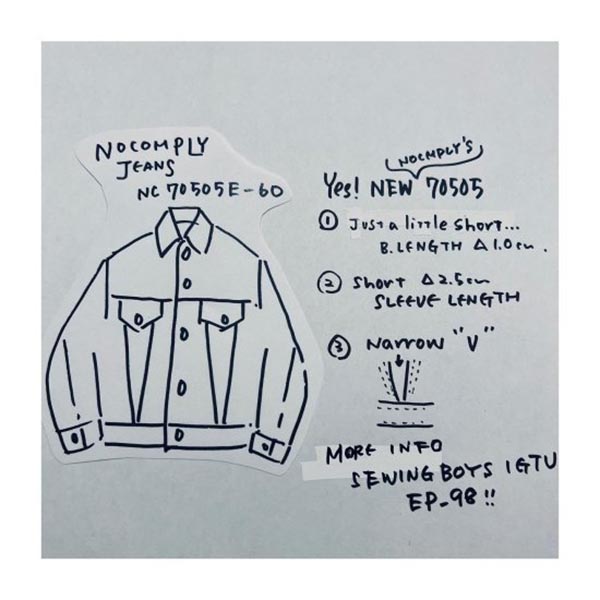 NOCOMPLY
JEANS
NC 70505E-60
NOCMPLY'S
Yes! NEW 70505
① Just a little short...
B.LENGTH △1.0cm.
② Short △2.5cm
SLEEVE LENGTH
③ Narrow "V"
MORE INFO
SEWING BOYS IGTU
EP-98!!